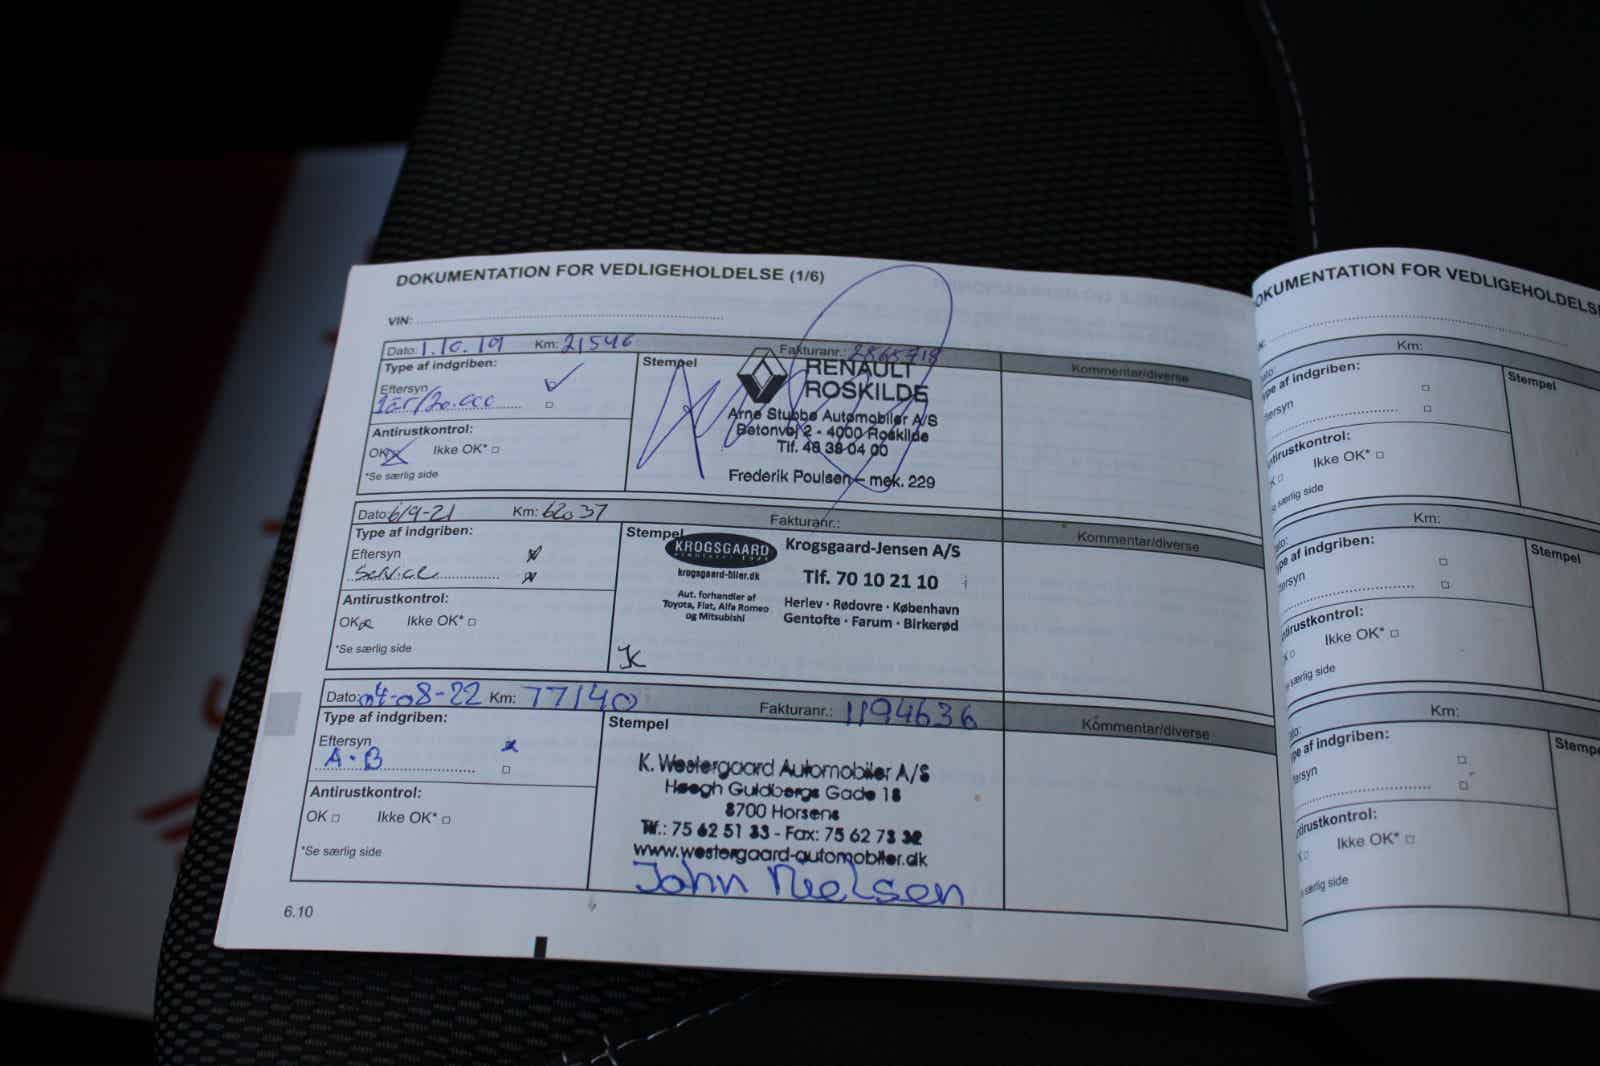 DOKUMENTATION FOR VEDLIGEHOLDELSE (1/6)
VIN:
Dato: 1.10.19 Km: 21546 Fakturanr.: 2865718
Type af indgriben:
Stempel
Kommentar/diverse
Eftersyn
RENAULT
ROSKILDE
Arne Stubbe Automobiler A/S
Betonvej 2 - 4000 Roskilde
Tlf. 46 38 04 00
Frederik Poulsen - mek. 229
Antirustkontrol:
OK Ikke OK*
*Se særlig side
Dato: 6/9-21 Km: 62037 Fakturanr.:
Type af indgriben:
Stempel
Kommentar/diverse
Eftersyn
Service
KROGSGAARD
krogsgaard-biler.dk
Aut. forhandler af
Toyota, Fiat, Alfa Romeo
og Mitsubishi
Krogsgaard-Jensen A/S
Tlf. 70 10 21 10
Herlev · Rødovre · København
Gentofte · Farum · Birkerød
Antirustkontrol:
OK Ikke OK*
*Se særlig side
JK
Dato: 04-08-22 Km: 77140 Fakturanr.: 1194636
Type af indgriben:
Stempel
Kommentar/diverse
Eftersyn
A·B
K. Westergaard Automobiler A/S
Høegh Guldbergs Gade 18
8700 Horsens
Tlf.: 75 62 51 33 - Fax: 75 62 73 32
www.westergaard-automobiler.dk
John Nielsen
Antirustkontrol:
OK Ikke OK*
*Se særlig side
6.10
OKUMENTATION FOR VEDLIGEHOLDELS
Km:
pe af indgriben:
Stempel
ersyn
ntirustkontrol:
Ikke OK*
*Se særlig side
Km:
pe af indgriben:
Stempel
ersyn
tirustkontrol:
Ikke OK*
Se særlig side
Km:
pe af indgriben:
Stempe
ersyn
tirustkontrol:
Ikke OK*
e særlig side